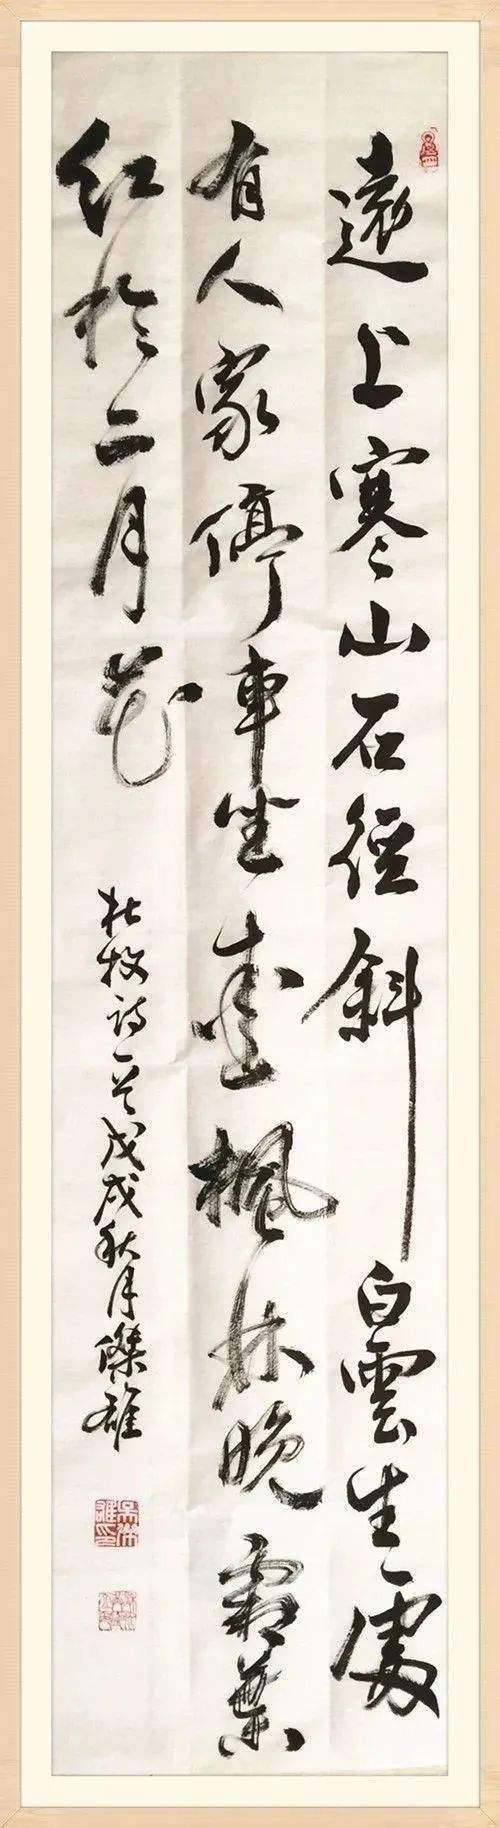 遠上寒山石径斜白雲生處
有人家停車坐愛楓林晚霜葉
红於二月花
杜牧诗一首戊戌秋月傑雄